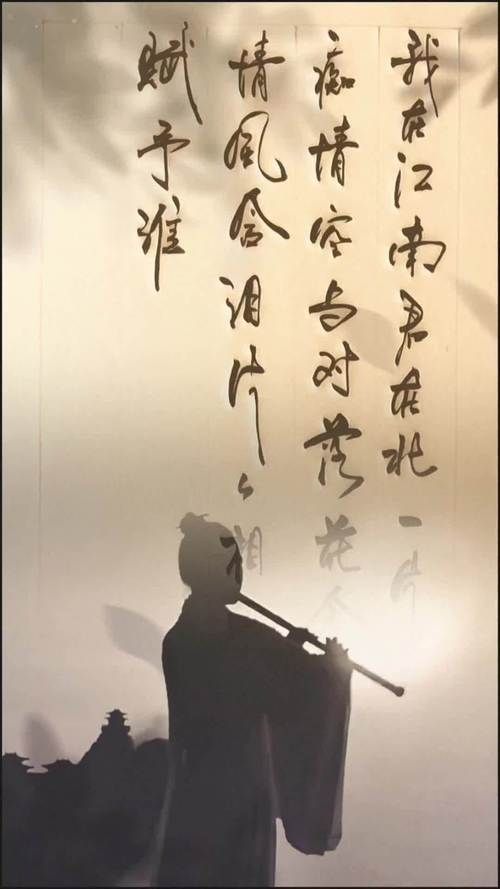 我在江南君在北一片
痴情空与对落花含
情風含泪片々相
赋予谁